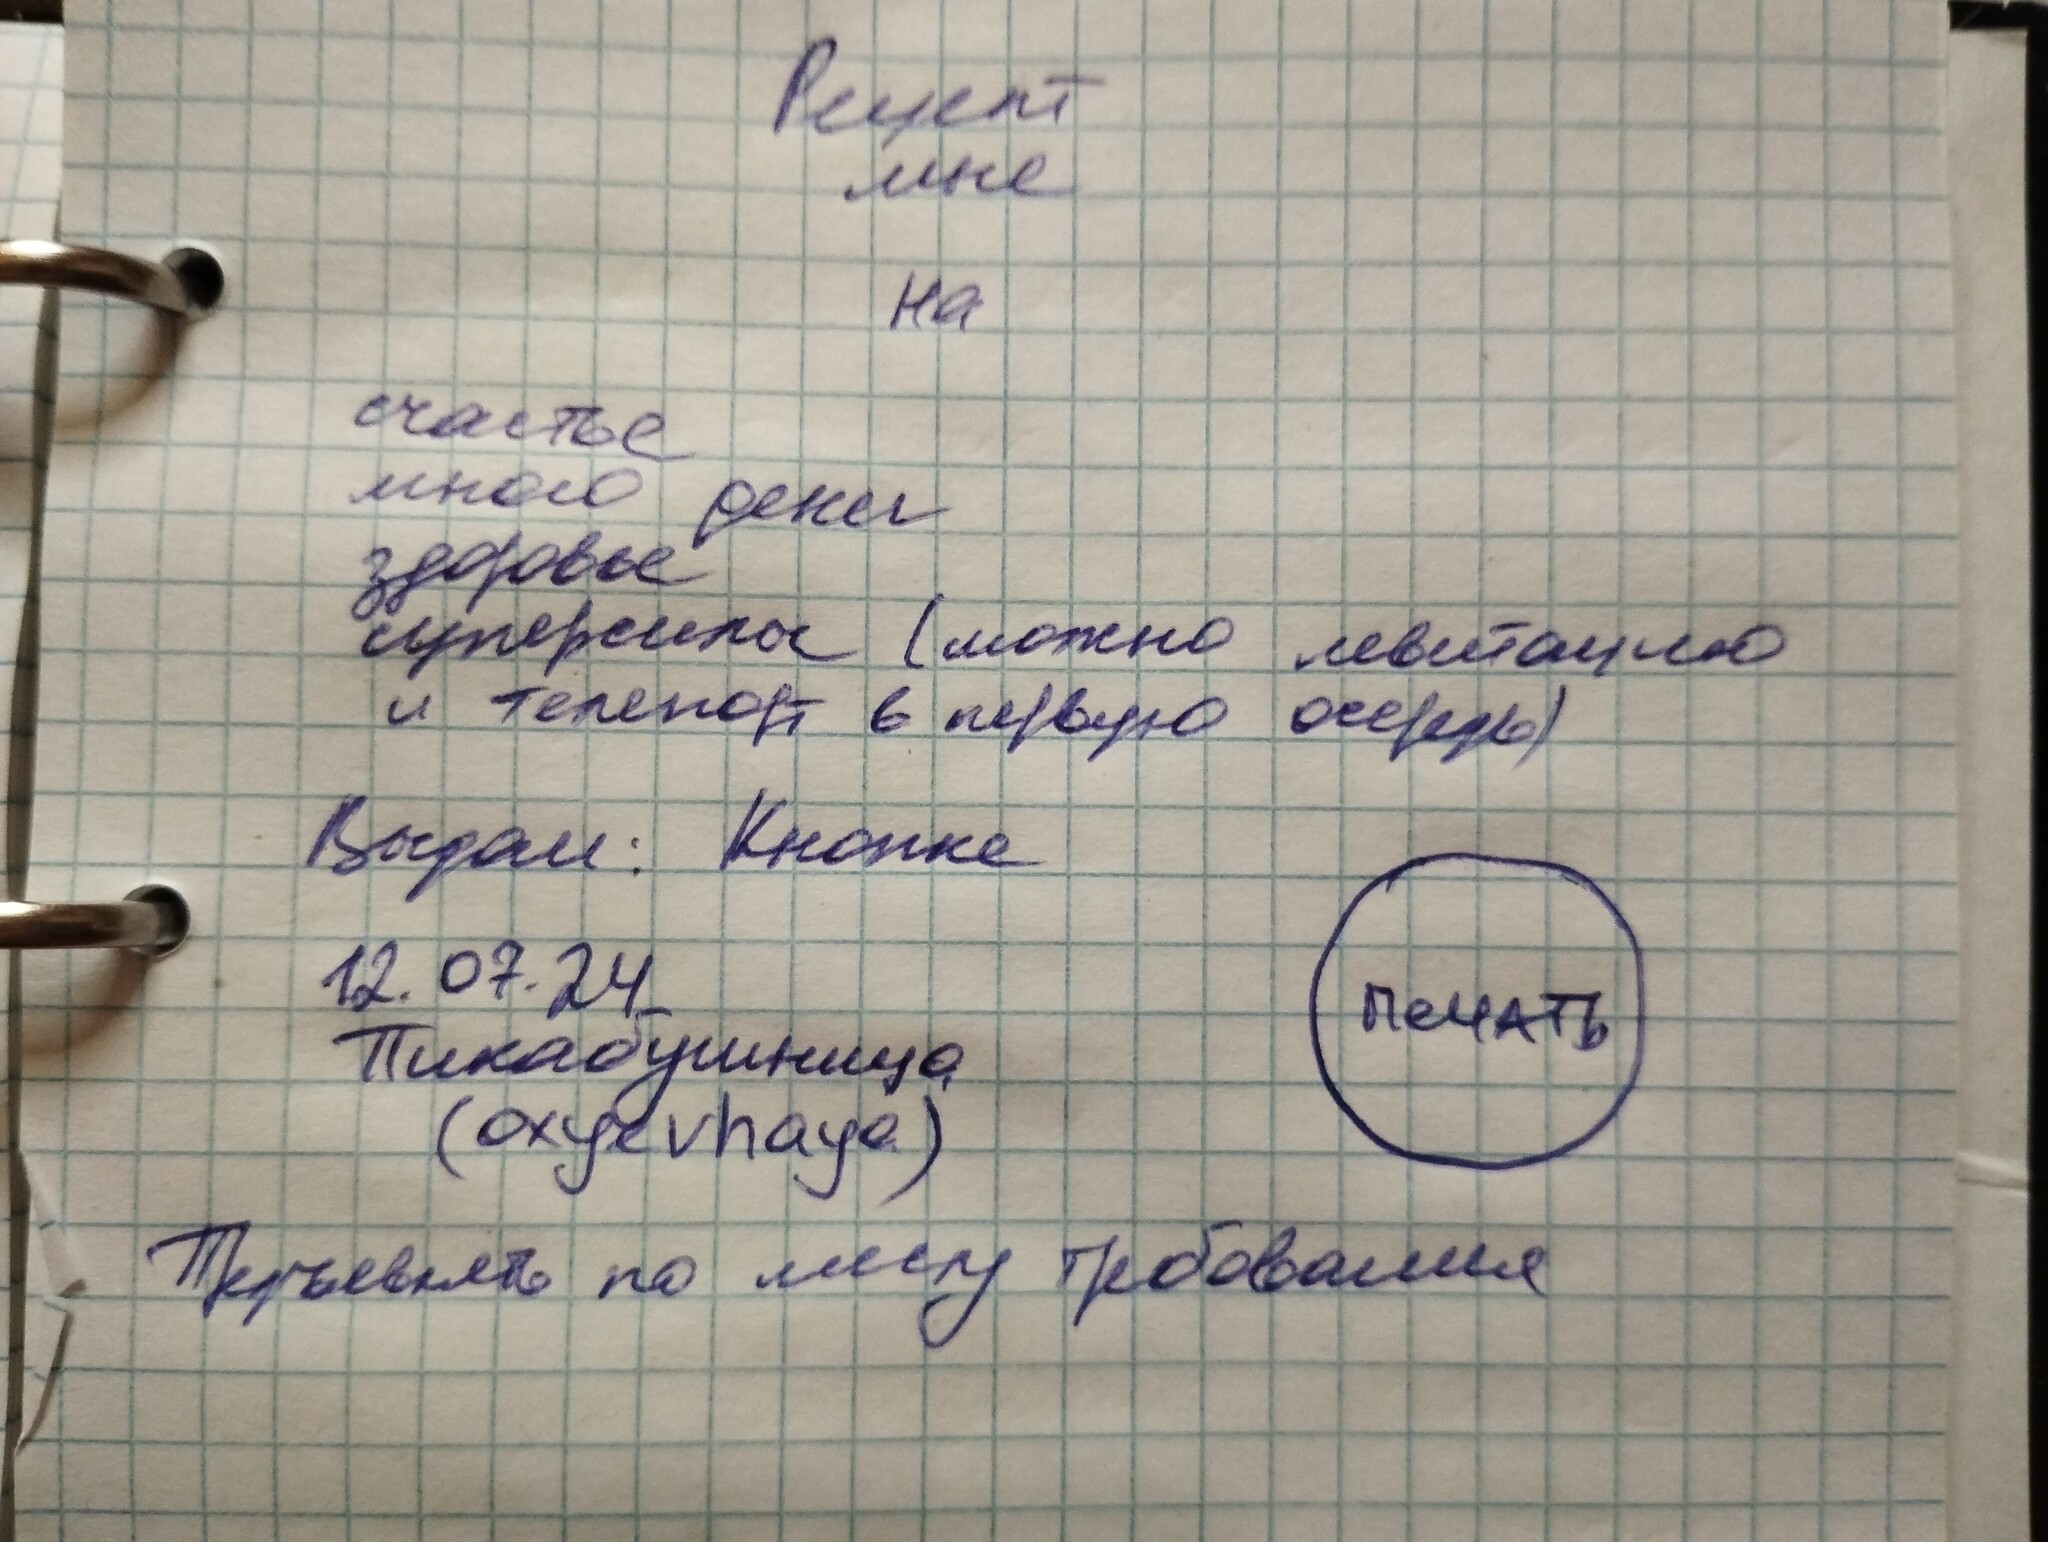 Рецепт
мне
на
счастье
много денег
здоровье
суперсилы (можно левитацию
и телепорт в первую очередь)
Выдан: Кнопке
12.07.24
Пикабушница
(oxyevhaya)
ПЕЧАТЬ
Предъевлять по месту требования